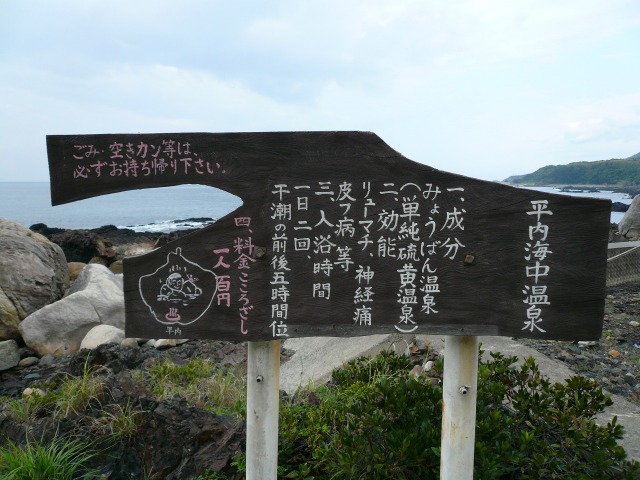 平内海中温泉
一、成分
みょうばん温泉
(単純硫黄温泉)
二、効能
リューマチ、神経痛
皮フ病等
三、入浴時間
一日二回、
干潮の前後五時間位
四、料金こころざし
一人百円
ごみ・空きカン等は、
必ずお持ち帰り下さい。
平内